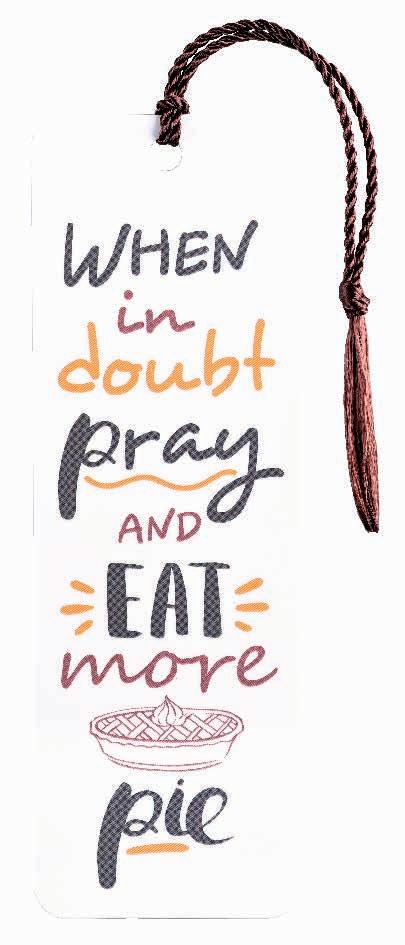 WHEN
in
doubt
pray
AND
EAT
more
pie